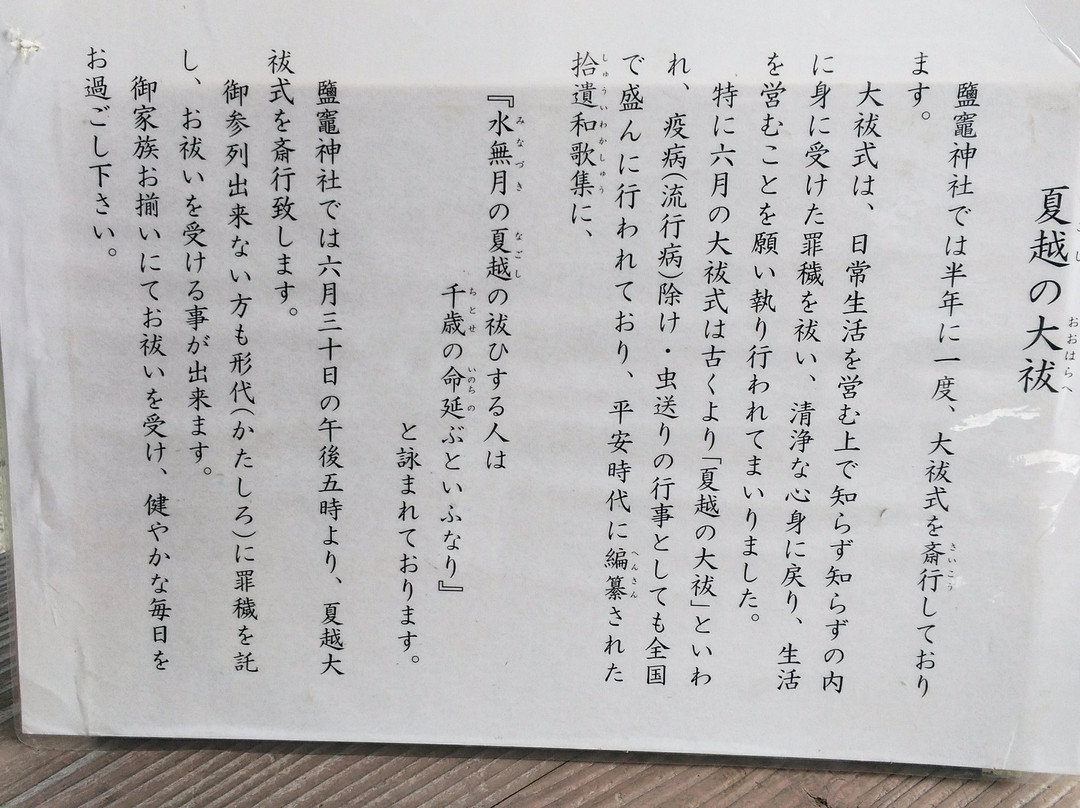 夏越の大祓
鹽竈神社では半年に一度、大祓式を斎行しており
ます。
大祓式は、日常生活を営む上で知らず知らずの内
に身に受けた罪穢を祓い、清浄な心身に戻り、生活
を営むことを願い執り行われてまいりました。
特に六月の大祓式は古くより「夏越の大祓」といわ
れ、疫病(流行病)除け・虫送りの行事としても全国
で盛んに行われており、平安時代に編纂された
拾遺和歌集に、
『水無月の夏越の祓ひする人は
千歳の命延ぶといふなり』
と詠まれております。
鹽竈神社では六月三十日の午後五時より、夏越大
祓式を斎行致します。
御参列出来ない方も形代(かたしろ)に罪穢を託
し、お祓いを受ける事が出来ます。
御家族お揃いにてお祓いを受け、健やかな毎日を
お過ごし下さい。